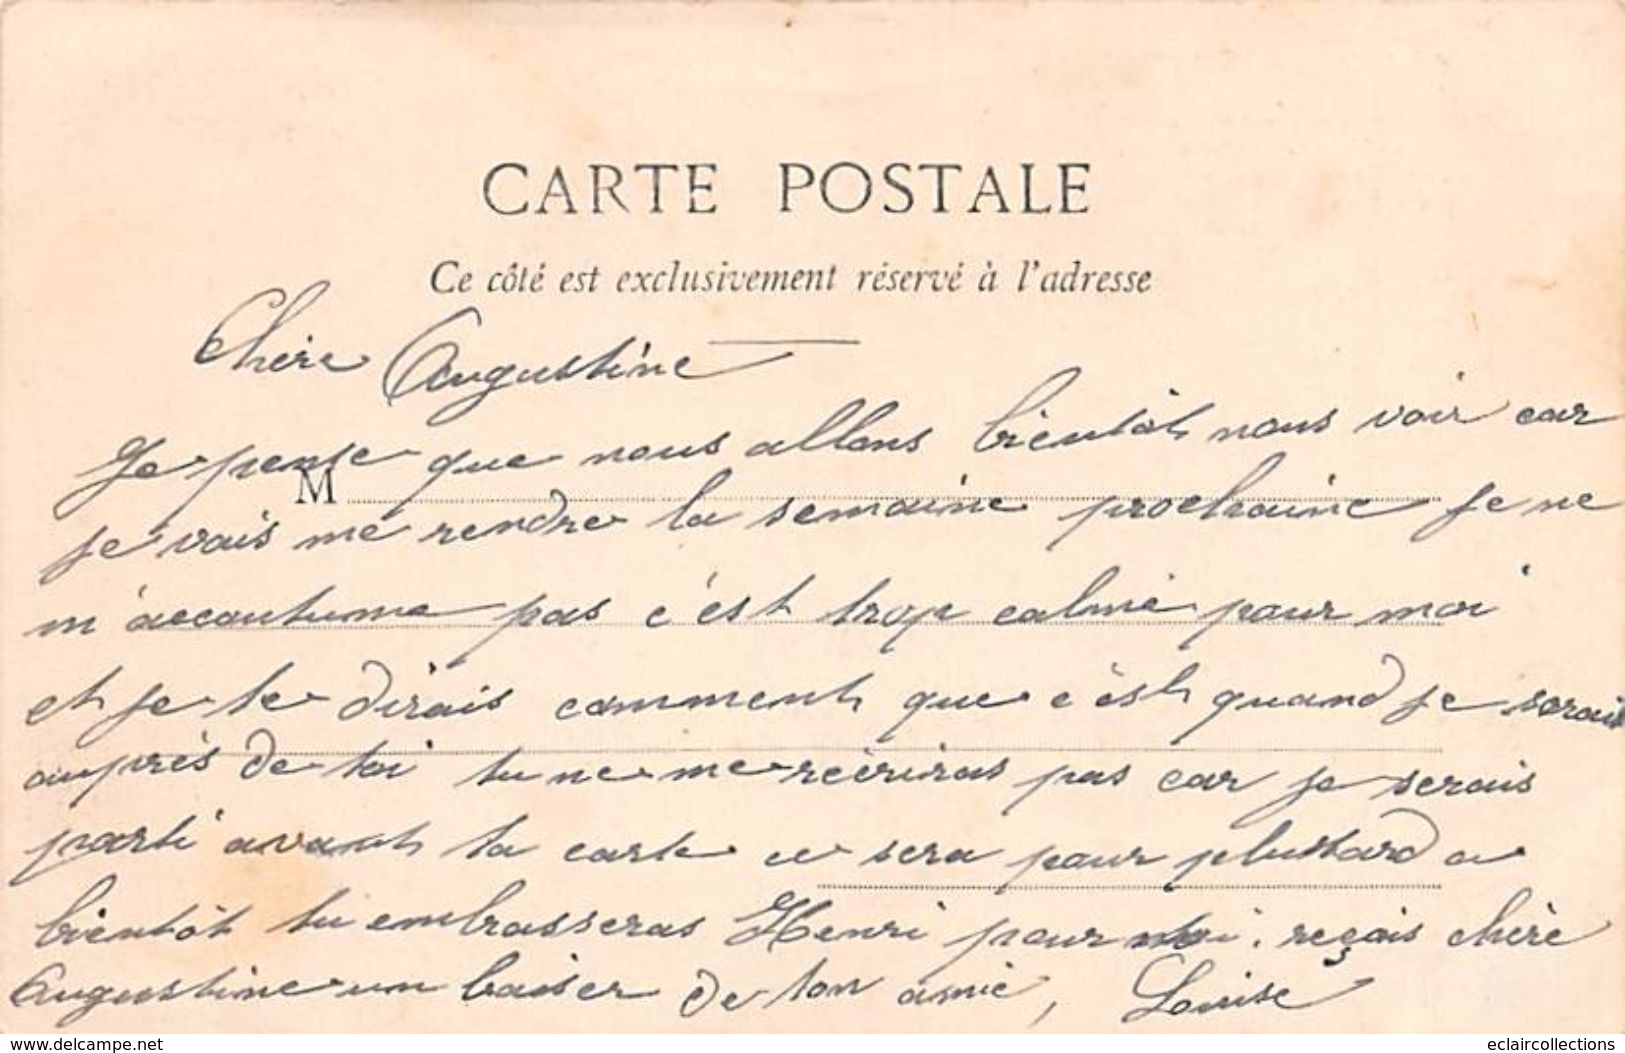 CARTE POSTALE
Ce côté est exclusivement réservé à l'adresse
Chère Augustine
Je pense que nous allons bientôt nous voir car
M
je vais me rendre la semaine prochaine je ne
m'accoutume pas c'est trop calme pour moi
et je te dirais comment que c'est quand je serais
auprès de toi tu ne me récriras pas car je serais
parti avant ta carte ce sera pour plustard a
bientôt tu embrasseras Henri pour moi. reçois chère
Augustine un baiser de ton amie, Louise
www.delcampe.net
eclaircollections